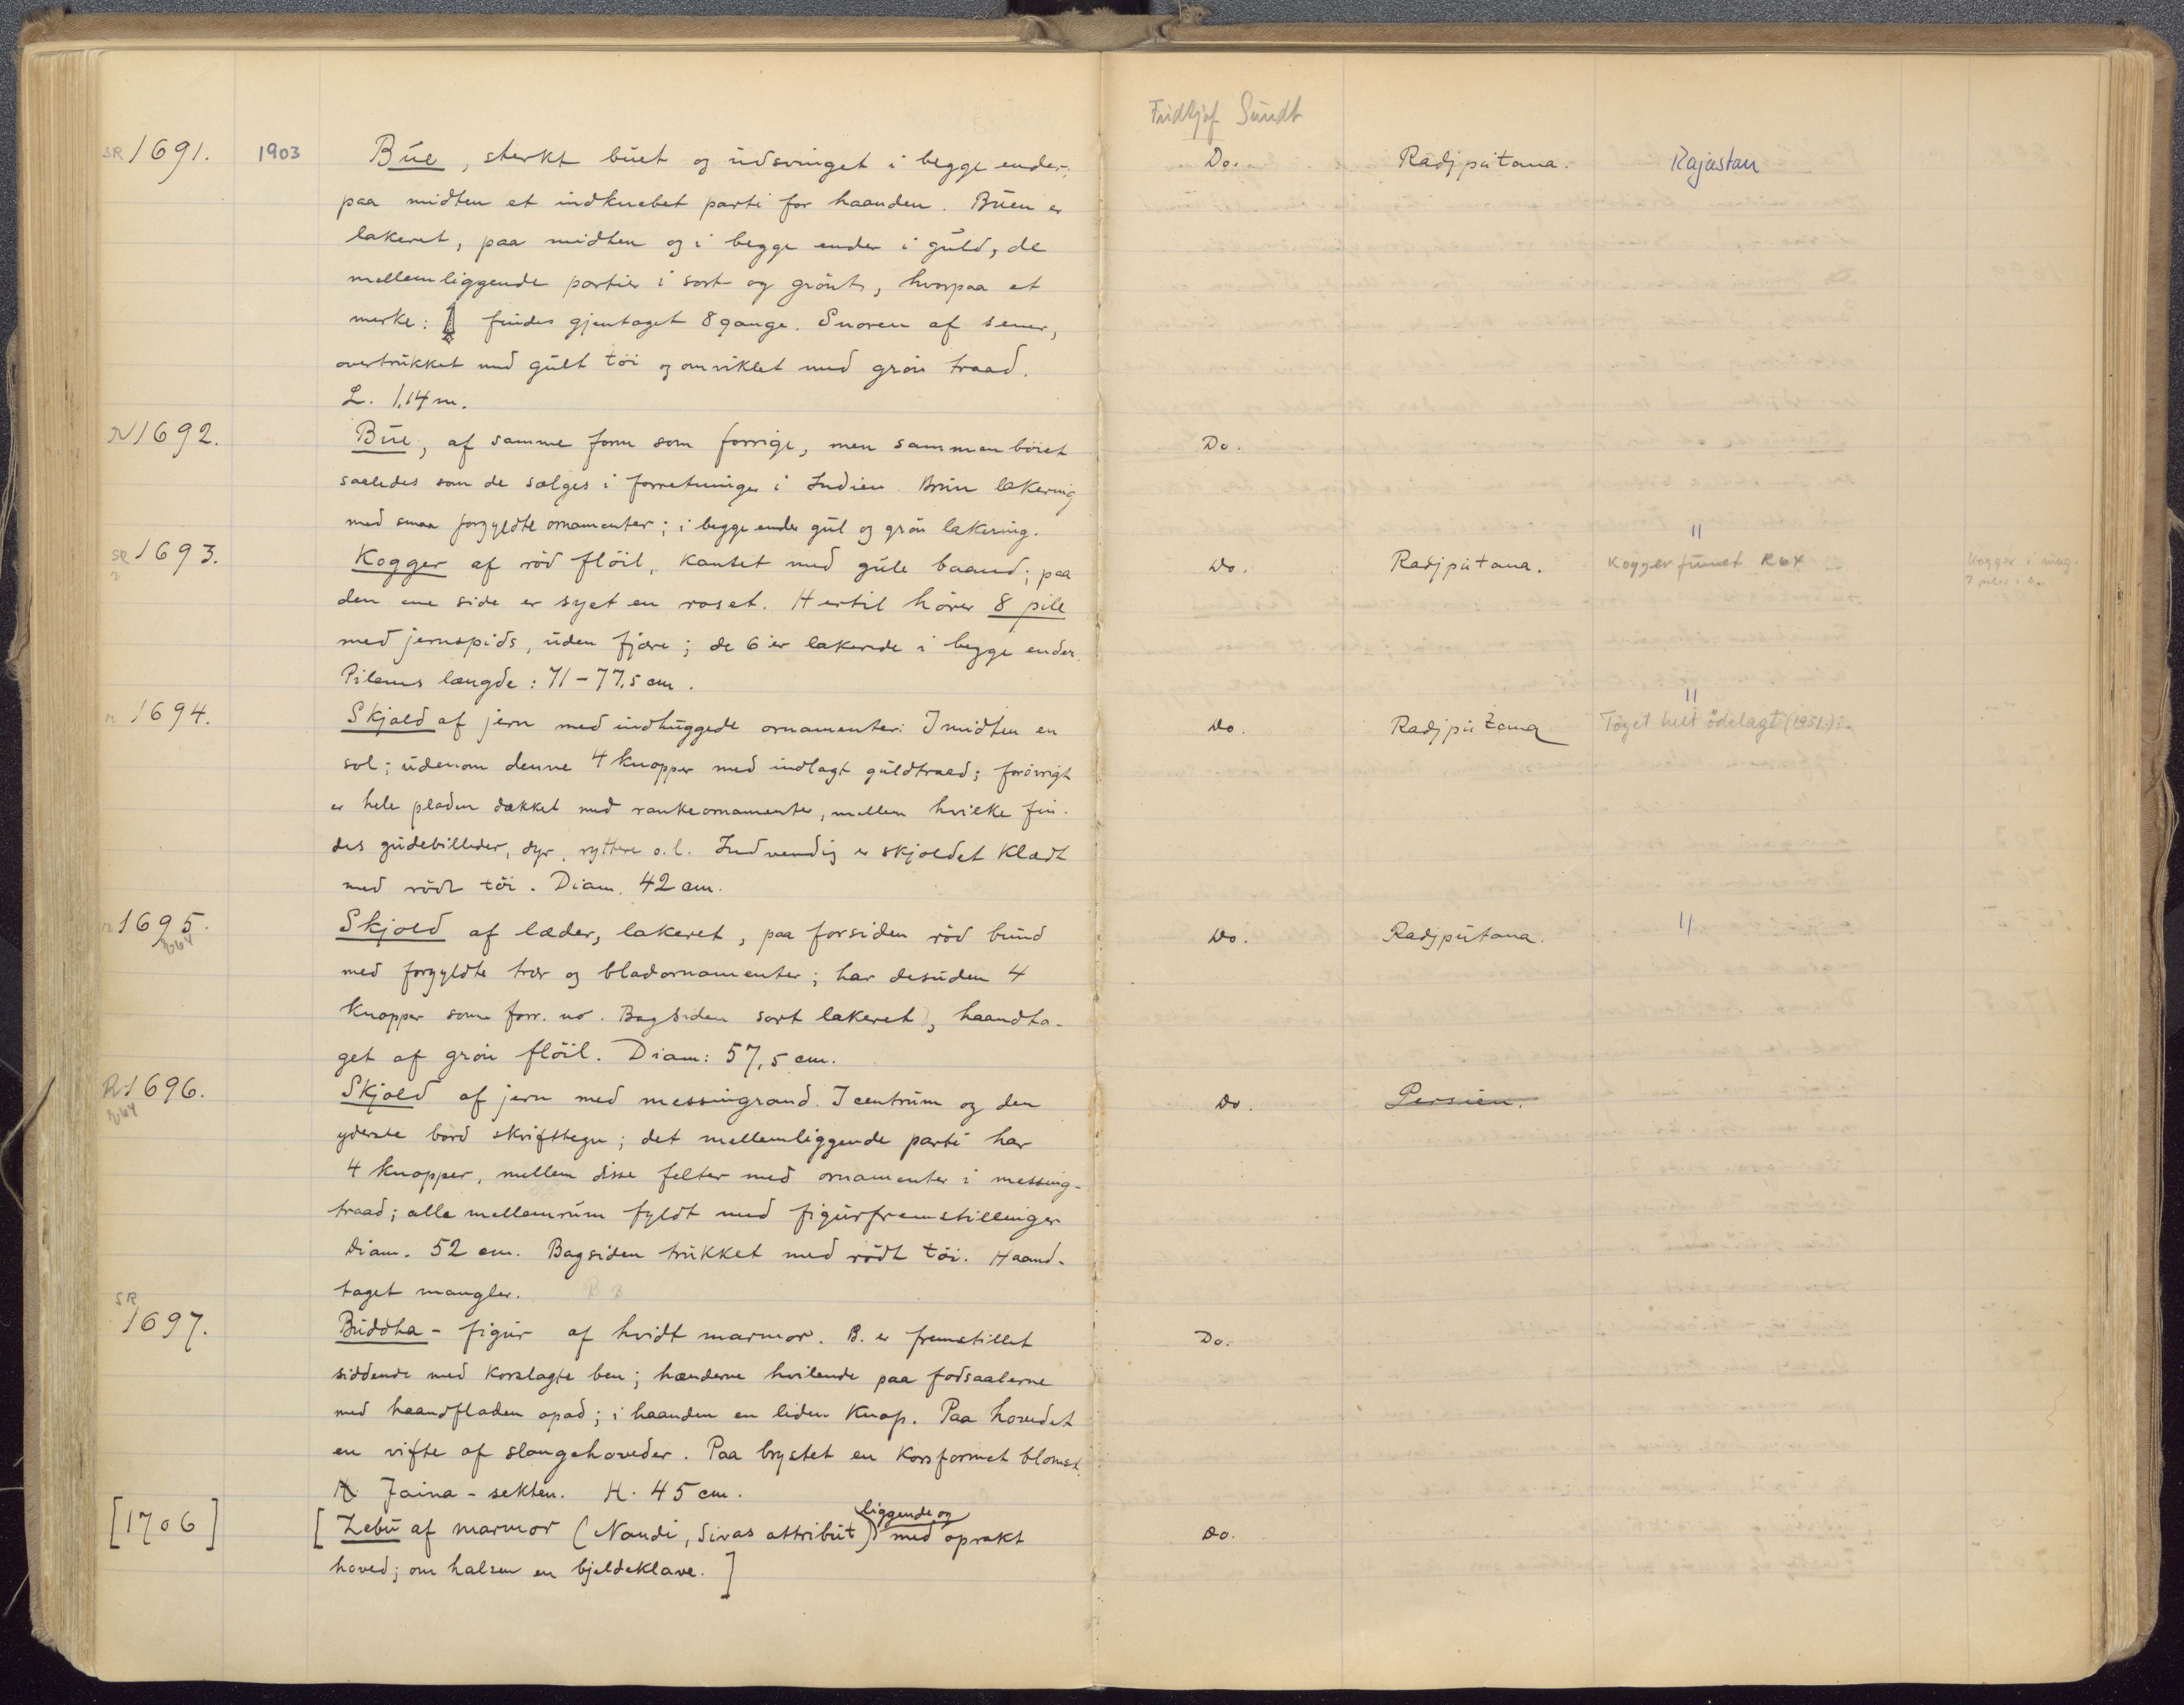 Fridtjof Sundt
SR 1691. 1903 Bue, sterkt buet og udsvinget i begge ender; Do. Radjputana. Rajastan
paa midten et indknebet parti for haanden. Buen er
lakeret, paa midten og i begge ender i guld, de
mellemliggende partier i sort og grönt, hvorpaa et
merke: findes gjentaget 8 gange. Snoren af sener,
overtrukket med gult töi og omviklet med grön traad.
L. 1,14 m.
N 1692. Bue, af samme form som forrige, men sammenböiet Do.
saaledes som de sælges i forretninger i Indien. Brun lakering
med smaa forgyldte ornamenter; i begge ender gul og grön lakering.
SR 1693. Kogger af röd flöil, kantet med gule baand; paa Do. Radjputana. " Kogger funnet R64 Kogger i mag.
den ene side er syet en roset. Hertil hörer 8 pile
med jernspids, uden fjære; de 6 er lakerede i begge ender.
Pilenes længde: 71-77,5 cm.
n 1694. Skjold af jern med indhuggede ornamenter: I midten en Do. Radjputana " Töyet helt ödelagt (1951)
sol; udenom denne 4 knopper med indlagt guldtraad; forövrigt
er hele pladen dækket med rankeornamenter, mellem hvilke fin-
des gudebilleder, dyr, ryttere o.l. Indvendig er skjoldet klædt
med rödt töi. Diam. 42 cm.
n 1695. R64 Skjold af læder, lakeret, paa forsiden röd bund Do. Radjputana. "
med forgyldte trær og bladornamenter; har desuden 4
knopper som forr. no. Bagsiden sort lakeret, haandta-
get af grön flöil. Diam: 57,5 cm.
R 1696. R64 Skjold af jern med messingrand. I centrum og den Do. Persien.
yderste bord skrifttegn; det mellemliggende parti har
4 knopper, mellem disse felter med ornamenter i messing-
traad; alle mellemrum fyldt med figurfremstillinger
Diam. 52 cm. Bagsiden trukket med rödt töi. Haand-
taget mangler.
SR 1697. Buddha-figur af hvidt marmor. B. er fremstillet Do.
siddende med korslagte ben; hænderne hvilende paa fodsaalerne
med haandfladen opad; i haanden en liden knop. Paa hovedet
en vifte af slangehoveder. Paa brystet en korsformet blomst.
Jaina-sekten. H. 45 cm.
[1706] [Zebu af marmor (Nandi, Sivas attribut) liggende og med oprakt Do.
hoved; om halsen en bjeldeklave.]